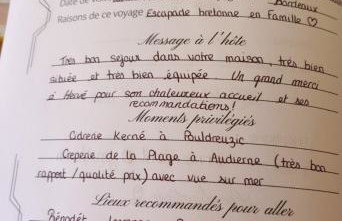 Date de
Bordeaux
Raisons de ce voyage Escapade bretonne en Famille ♡
Message à l'hôte
Très bon séjour dans votre maison, très bien
située et très bien équipée Un grand merci
à Hervé pour son chaleureux accueil et ses
recommandations!
Moments privilégiés
Cidrerie Kerné à Pouldreuzic
Crêperie de la Plage à Audierne (très bon
rapport / qualité prix) avec vue sur mer
Lieux recommandés pour aller
Bénodet